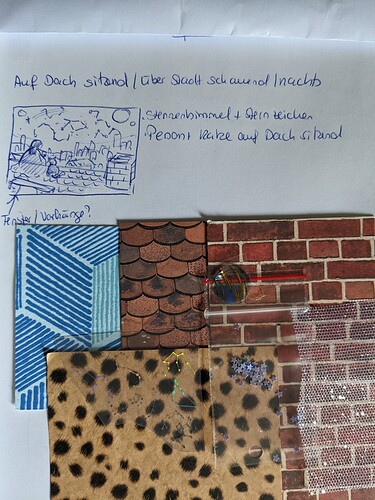 Auf Dach sitzend / über Stadt schauend / nachts
. Sternenhimmel + Sternzeichen
. Person + Katze auf Dach sitzend
Fenster / Vorhänge?